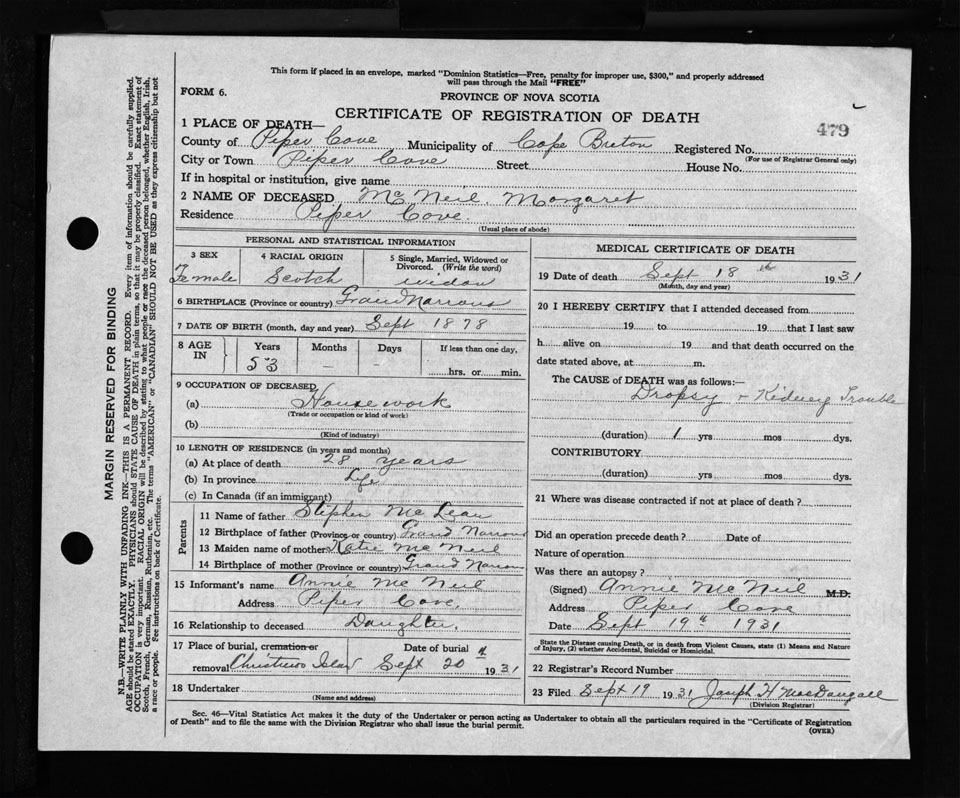 This form if placed in an envelope, marked "Dominion Statistics—Free, penalty for improper use, $300," and properly addressed
will pass through the Mail "FREE"
FORM 6.
PROVINCE OF NOVA SCOTIA
CERTIFICATE OF REGISTRATION OF DEATH
479
1 PLACE OF DEATH—
County of Piper Cove Municipality of Cape Breton Registered No.
(For use of Registrar General only)
City or Town Piper Cove Street House No.
If in hospital or institution, give name
2 NAME OF DECEASED McNeil, Margaret
Residence Piper Cove.
(Usual place of abode)
PERSONAL AND STATISTICAL INFORMATION
3 SEX
Female
4 RACIAL ORIGIN
Scotch
5 Single, Married, Widowed or
Divorced. (Write the word)
widow
6 BIRTHPLACE (Province or country) Grand Narrows
7 DATE OF BIRTH (month, day and year) Sept 1878
8 AGE IN
Years Months Days If less than one day,
53 — — hrs. or min.
9 OCCUPATION OF DECEASED
(a) House work
(Trade or occupation or kind of work)
(b)
(Kind of industry)
10 LENGTH OF RESIDENCE (in years and months)
(a) At place of death 28 years
(b) In province Life
(c) In Canada (if an immigrant)
Parents
11 Name of father Stephen McLean
12 Birthplace of father (Province or country) Grand Narrows
13 Maiden name of mother Katie McNeil
14 Birthplace of mother (Province or country) Grand Narrows
15 Informant's name Annie McNeil
Address Piper Cove.
16 Relationship to deceased Daughter.
17 Place of burial, cremation or Date of burial
removal Christmas Island Sept 20th 1931
18 Undertaker
(Name and address)
MEDICAL CERTIFICATE OF DEATH
19 Date of death Sept 18th 1931
(Month, day and year)
20 I HEREBY CERTIFY that I attended deceased from
19 to 19 that I last saw
h alive on 19 and that death occurred on the
date stated above, at m.
The CAUSE of DEATH was as follows:—
Dropsy + Kidney Trouble
(duration) 1 yrs mos dys.
CONTRIBUTORY
(duration) yrs mos dys.
21 Where was disease contracted if not at place of death?
Did an operation precede death? Date of
Nature of operation
Was there an autopsy?
(Signed) Annie McNeil M.D.
Address Piper Cove
Date Sept 19th 1931
State the Disease causing Death, or in death from Violent Causes, state (1) Means and Nature
of Injury, (2) whether Accidental, Suicidal or Homicidal.
22 Registrar's Record Number
23 Filed Sept 19 1931 Joseph H MacDougall
(Division Registrar)
Sec. 46—Vital Statistics Act makes it the duty of the Undertaker or person acting as Undertaker to obtain all the particulars required in the "Certificate of Registration
of Death" and to file the same with the Division Registrar who shall issue the burial permit.
(OVER)
MARGIN RESERVED FOR BINDING
N.B.—WRITE PLAINLY WITH UNFADING INK—THIS IS A PERMANENT RECORD. Every item of information should be carefully supplied.
AGE should be stated EXACTLY. PHYSICIANS should STATE CAUSE OF DEATH in plain terms, so that it may be properly classified. Exact statement of
OCCUPATION is very important. RACIAL ORIGIN will be described by stating to what people or race the deceased person belonged, whether English, Irish,
Scotch, French, German, Russian, Ruthenian, etc. The terms "AMERICAN" or "CANADIAN" SHOULD NOT BE USED as they express citizenship but not
a race or people. See instructions on back of Certificate.